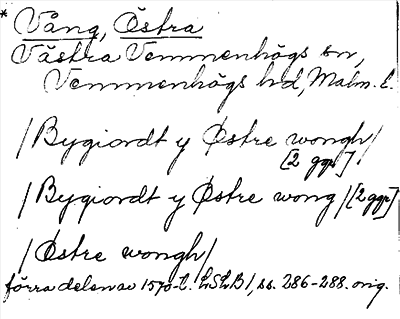 * Vång, Östra
Västra Vemmenhögs sn,
Vemmenhögs hd, Malm. l.
/Bygiordt y Østre wongh/
[2 ggr]
/Bygiordt y Østre wong/ [2 ggr]
/Østre wongh/
förra delen av 1570-t. LSLB 1, ss. 286-288. orig.